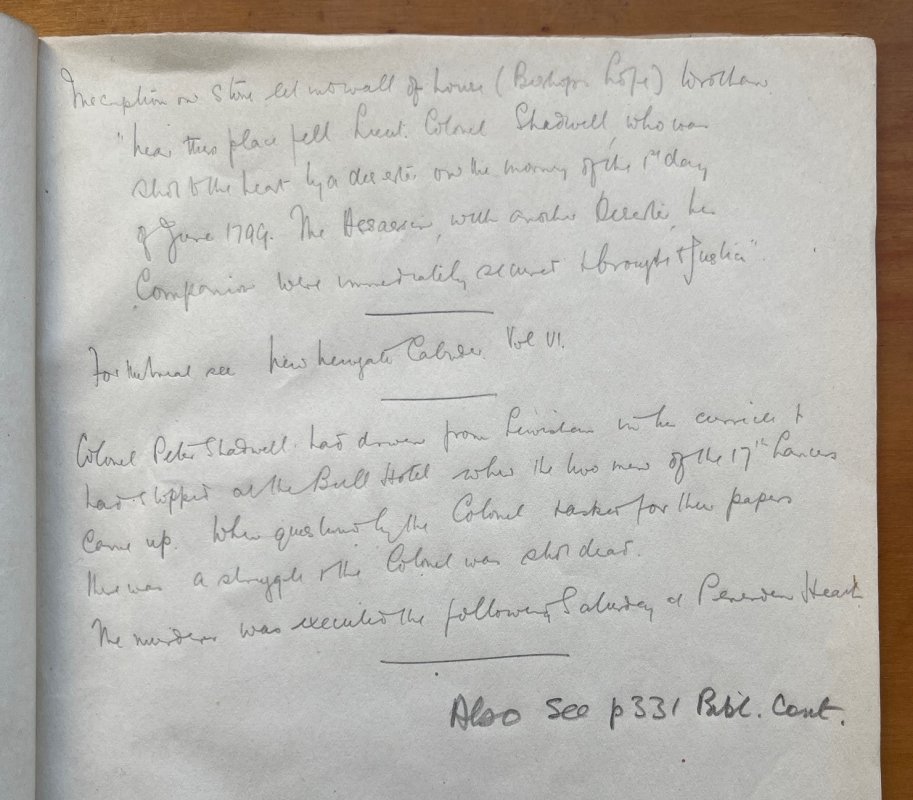 Inscription on Stone let into wall of house (Bishops Lofe) Wrotham
"near this place fell Lieut. Colonel Shadwell, who was
shot to the heart by a deserter on the morning of the 1st day
of June 1799. The Assassin, with another Deserter, his
Companion were immediately secured & brought to Justice".
For the trial see New Newgate Calender Vol VI.
Colonel Peter Shadwell had driven from Lewisham in his curricle &
had stopped at the Bull Hotel when the two men of the 17th Lancers
came up. When questioned by the Colonel & asked for their papers
there was a struggle & the Colonel was shot dead.
The murderer was executed the following Saturday at Penenden Heath
Also See p331 Bibl. Cant.